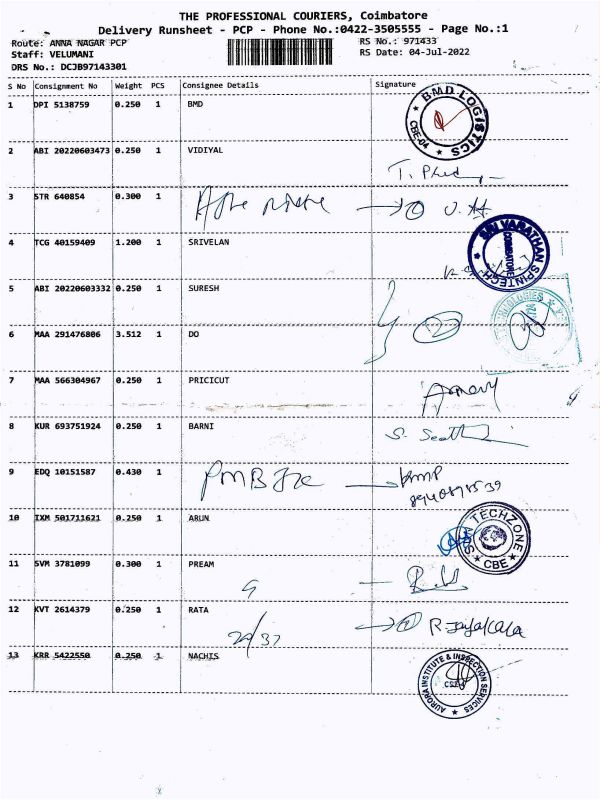 THE PROFESSIONAL COURIERS, Coimbatore
Delivery Runsheet - PCP - Phone No.:0422-3505555 - Page No.:1
Route: ANNA NAGAR PCP RS No.: 971433
Staff: VELUMANI RS Date: 04-Jul-2022
DRS No.: DCJB97143301
S No Consignment No Weight PCS Consignee Details Signature
1 DPI 5138759 0.250 1 BMD
BMD LOGISTICS CBE-04
2 ABI 20220603473 0.250 1 VIDIYAL
3 STR 640854 0.300 1
4 TCG 40159409 1.200 1 SRIVELAN
SRI VARATHAN SPINTECH COIMBATORE
5 ABI 20220603332 0.250 1 SURESH
6 MAA 291476806 3.512 1 DO
7 MAA 566304967 0.250 1 PRICICUT
8 KUR 693751924 0.250 1 BARNI
9 EDQ 10151587 0.430 1
10 IXM 501711621 0.250 1 ARUN
TECHZONE CBE
11 SVM 3781099 0.300 1 PREAM
12 KVT 2614379 0.250 1 RATA
29/37 R. Jayakala
13 KRR 5422550 0.250 1 NACHIS
AURORA INSTITUTE & INSPECTION SERVICES